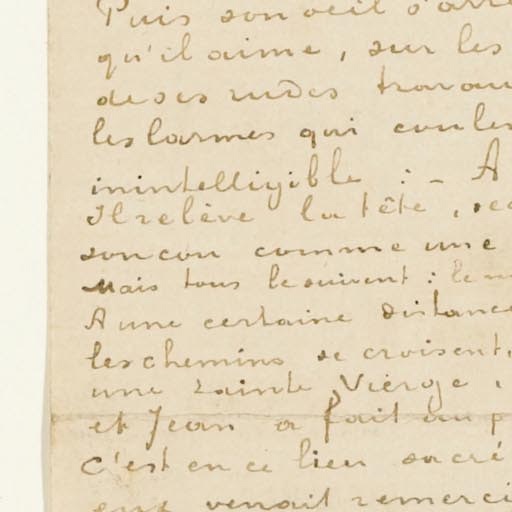 Puis son oeil s'arr
qu'il aime, sur les
de ses rudes travau
les larmes qui coule
inintelligible : - A
Il relève la tête,
son cou comme une
Mais tous le suivent : le
A une certaine distance
les chemins se croisent,
une sainte Vierge
et Jean a fait au p
C'est en ce lieu sacré
venait remerci